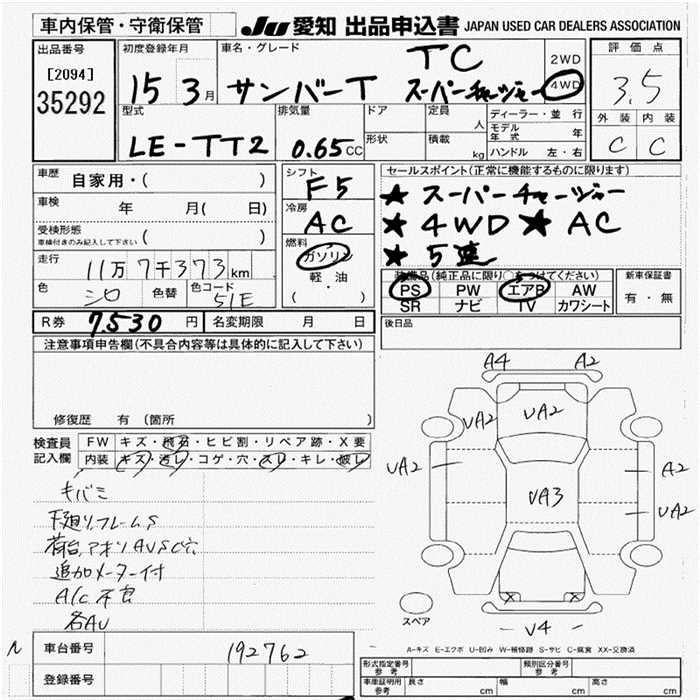 車内保管・守衛保管
JU 愛知 出品申込書 JAPAN USED CAR DEALERS ASSOCIATION
出品番号
[2094]
35292
初度登録年月
15 3月
車名・グレード
TC
サンバーT スーパーチャージャー
2WD
4WD
評価点
3.5
外装 内装
C C
型式
LE-TT2
排気量
0.65CC
ドア
形状
定員 人
積載 kg
ディーラー・並行
モデル年式 年
ハンドル 左・右
車歴 自家用・( )
車検 年 月( 日)
受検形態
車検付きのみ記入して下さい ( )
走行 11万7千373km
色 シロ 色替 色コード 51E
シフト
F5
冷房
AC
燃料
ガソリン
軽・油
( )
セールスポイント(正常に機能するものに限ります)
★ スーパーチャージャー
★ 4WD ★ AC
★ 5速
装備品(純正品に限り○をつけてください)
PS PW エアB AW
SR ナビ TV カワシート
新車保証書
有・無
R券 7,530円 名変期限 月 日
後日品
注意事項申告欄(不具合内容等は具体的に記入して下さい)
修復歴 有(箇所 )
検査員記入欄
FW キズ・飛石・ヒビ割・リペア跡・X要
内装 キズ・汚レ・コゲ・穴・スレ・キレ・破レ
キバミ
下廻リ、フレームS
荷台、アオリAUSC穴
追加メーター付
A/C不良
各AU
A4 A2
UA2 UA2
UA2 A2
UA3 UA2
X X
U4
スペア
A-キズ E-エクボ U-凹み W-補修跡 S-サビ C-腐食 XX-交換済
車台番号 192762
登録番号
型式指定番号 参考
類別区分番号 参考
車庫証明用 参考 長さ cm 幅 cm 高さ cm